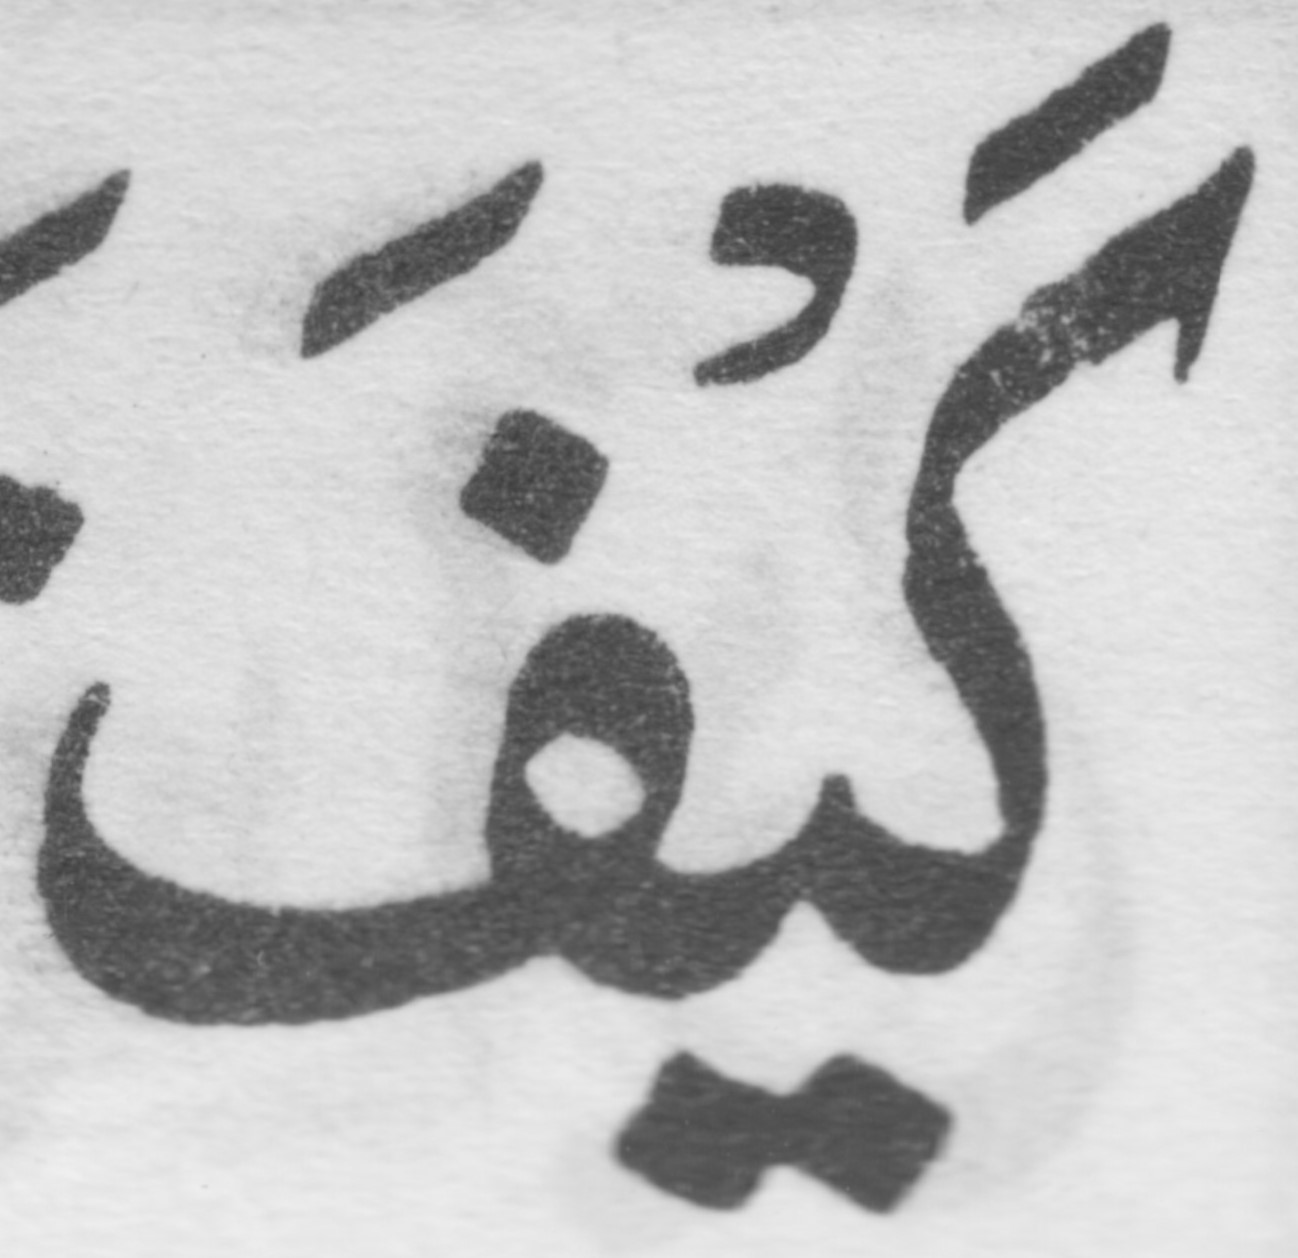 كَيْفَ